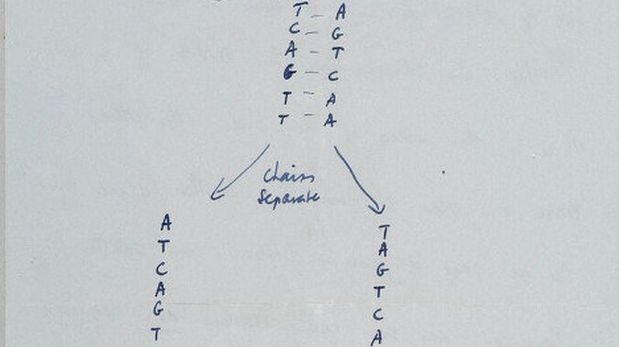 T - A
C - G
A - T
G - C
T - A
T - A
Chains
separate
A T
T A
C G
A T
G C
T A